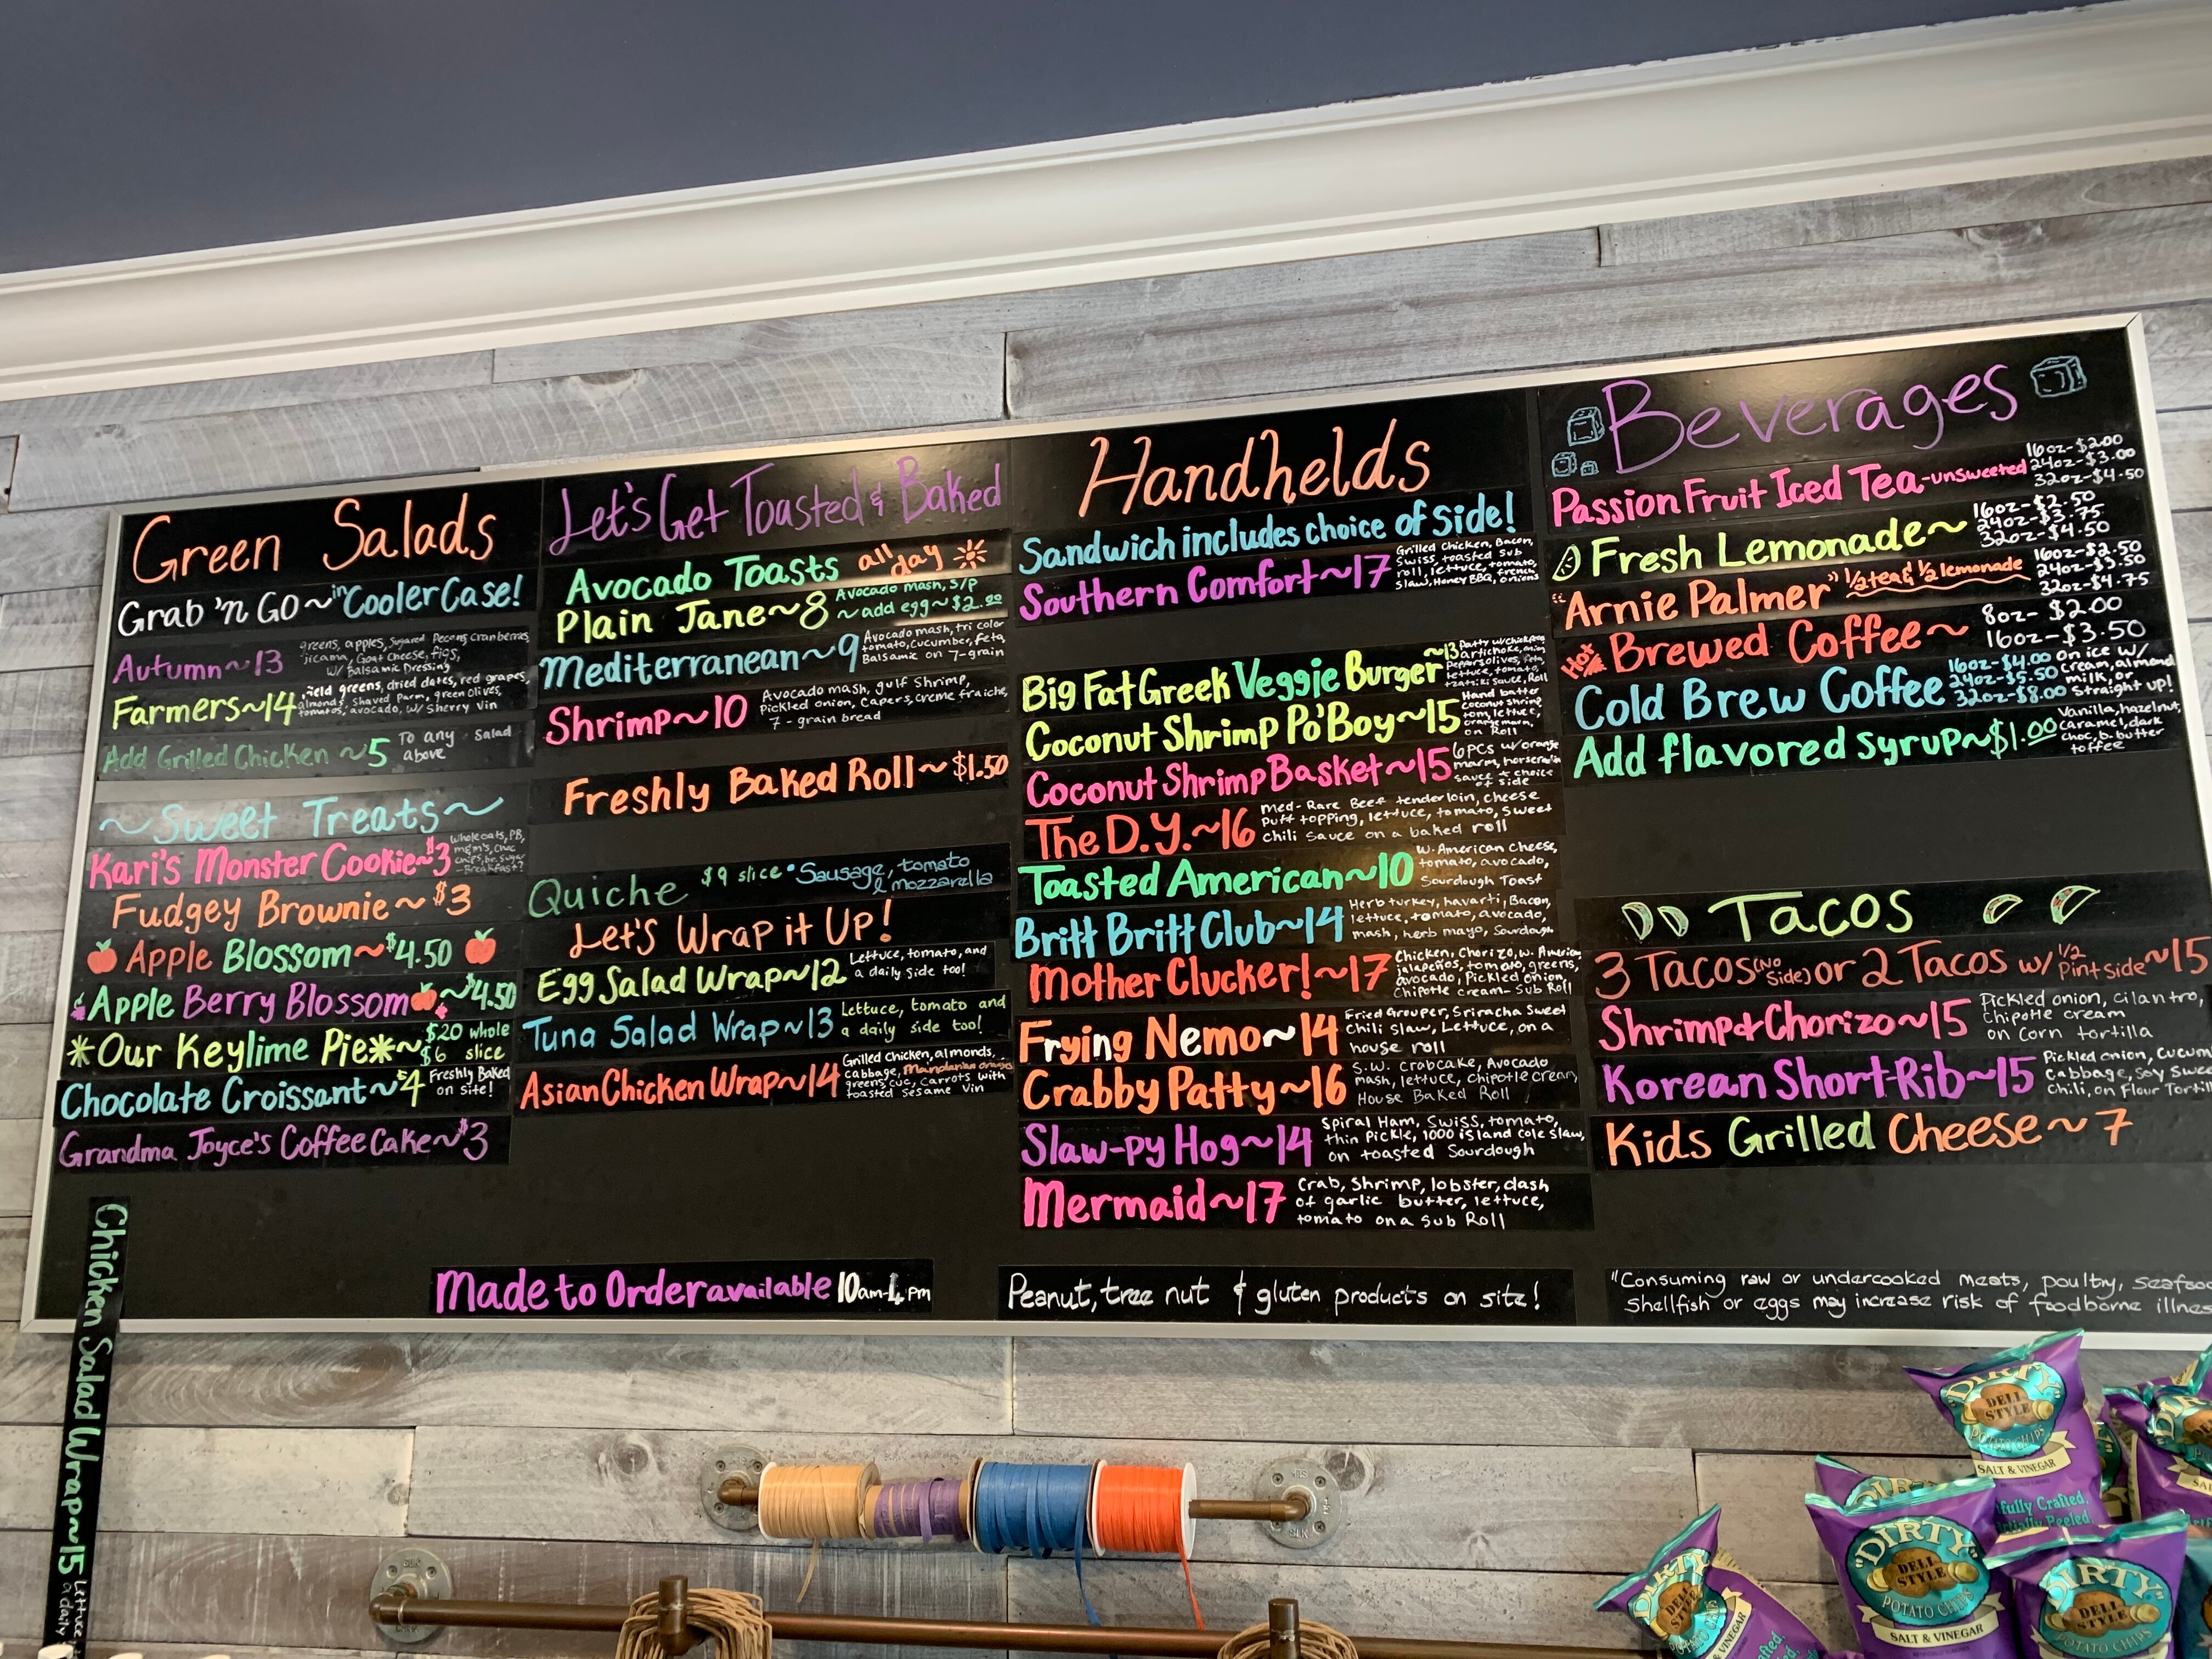 Green Salads
Grab 'n Go ~ in Cooler Case!
Autumn ~ 13
greens, apples, Sugared Pecans, Cranberries,
jicama, Goat Cheese, figs,
w/ Balsamic Dressing
Farmers ~ 14
field greens, dried dates, red grapes,
almonds, shaved Parm, green olives,
tomatos, avocado, w/ Sherry Vin
Add Grilled Chicken ~ 5
To any Salad
above
~ Sweet Treats ~
Kari's Monster Cookie ~ $3
Whole oats, PB,
m&m's, choc
chips, br. sugar
-Breakfast?
Fudgey Brownie ~ $3
Apple Blossom ~ $4.50
Apple Berry Blossom ~ $4.50
*Our Keylime Pie* ~ $20 whole
$6 slice
Chocolate Croissant ~ $4
Freshly Baked
on site!
Grandma Joyce's Coffee Cake ~ $3
Chicken Salad Wrap ~ 15
Lettuce,
a daily
Let's Get Toasted & Baked
Avocado Toasts all day
Plain Jane ~ 8
Avocado mash, s/p
~ add egg ~ $2.00
Mediterranean ~ 9
Avocado mash, tri color
tomato, cucumber, feta,
Balsamic on 7-grain
Shrimp ~ 10
Avocado mash, gulf Shrimp,
Pickled onion, Capers, creme fraiche,
7-grain bread
Freshly Baked Roll ~ $1.50
Quiche $9 slice • Sausage, tomato
& mozzarella
Let's Wrap it Up!
Egg Salad Wrap ~ 12
Lettuce, tomato, and
a daily side too!
Tuna Salad Wrap ~ 13
Lettuce, tomato and
a daily side too!
Asian Chicken Wrap ~ 14
Grilled Chicken, almonds,
Cabbage, Mandarian oranges
greens, cuc, Carrots with
toasted sesame Vin
Made to Order available 10am-4pm
Handhelds
Sandwich includes choice of side!
Southern Comfort ~ 17
Grilled Chicken, Bacon,
Swiss toasted Sub
roll, lettuce, tomato,
slaw, Honey BBQ, french onions
Big Fat Greek Veggie Burger ~ 13
Patty w/ chickpeas
artichoke, onion
Peppers, olives, feta,
lettuce, tomato,
tzatziki sauce, Roll
Coconut Shrimp Po'Boy ~ 15
Hand batter
Coconut shrimp
tom, lettuce,
orange marm,
on Roll
Coconut Shrimp Basket ~ 15
6 pcs w/ orange
marm, horseradish
sauce + choice
of side
The D.Y. ~ 16
Med-Rare Beef tenderloin, cheese
puff topping, lettuce, tomato, sweet
chili sauce on a baked roll
Toasted American ~ 10
W. American cheese,
tomato, avocado,
Sourdough Toast
Britt Britt Club ~ 14
Herb turkey, havarti, Bacon,
lettuce, tomato, avocado,
mash, herb mayo, Sourdough
Mother Clucker! ~ 17
Chicken, Chorizo, w. American
jalapeños, tomato, greens,
avocado, Pickled onion,
Chipotle cream - Sub Roll
Frying Nemo ~ 14
Fried Grouper, Sriracha Sweet
Chili slaw, Lettuce, on a
house roll
Crabby Patty ~ 16
S.W. crabcake, Avocado
mash, lettuce, Chipotle cream,
House Baked Roll
Slaw-py Hog ~ 14
Spiral Ham, Swiss, tomato,
thin Pickle, 1000 island cole slaw,
on toasted Sourdough
Mermaid ~ 17
Crab, Shrimp, lobster, dash
of garlic butter, lettuce,
tomato on a Sub Roll
Peanut, tree nut & gluten products on site!
Beverages
Passion Fruit Iced Tea - unsweetened
16oz-$2.00
24oz-$3.00
32oz-$4.50
Fresh Lemonade ~
16oz-$2.50
24oz-$3.75
32oz-$4.50
"Arnie Palmer" 1/2 tea & 1/2 lemonade
16oz-$2.50
24oz-$3.50
32oz-$4.75
Hot Brewed Coffee ~
8oz-$2.00
16oz-$3.50
Cold Brew Coffee
16oz-$4.00
24oz-$5.50
32oz-$8.00
On ice w/
cream, almond
milk, or
Straight up!
Add flavored syrup ~ $1.00
Vanilla, hazelnut,
caramel, dark
choc, b. butter
toffee
Tacos
3 Tacos (No Side) or 2 Tacos w/ 1/2 Pint side ~ 15
Shrimp & Chorizo ~ 15
Pickled onion, cilantro,
Chipotle cream
on Corn tortilla
Korean Short-Rib ~ 15
Pickled onion, Cucum
Cabbage, Soy Swee
Chili, on Flour Tortill
Kids Grilled Cheese ~ 7
"Consuming raw or undercooked meats, poultry, seafoo
Shellfish or eggs may increase risk of foodborne illnes
"DIRTY"
DELI
STYLE
POTATO CHIPS
SALT & VINEGAR
"DIRTY"
DELI
STYLE
POTATO CHIPS
SALT & VINEGAR
"DIRTY"
DELI
STYLE
POTATO CHIPS
"DIRTY"
DELI
STYLE
POTATO CHIPS
SALT & VINEGAR